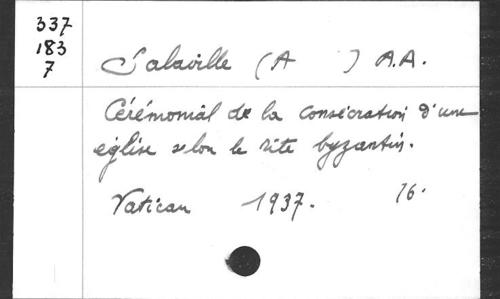 337
183
7
Salaville (A ) A.A.
Cérémonial de la consécration d'une
église selon le rite byzantin.
Vatican 1937. 16.